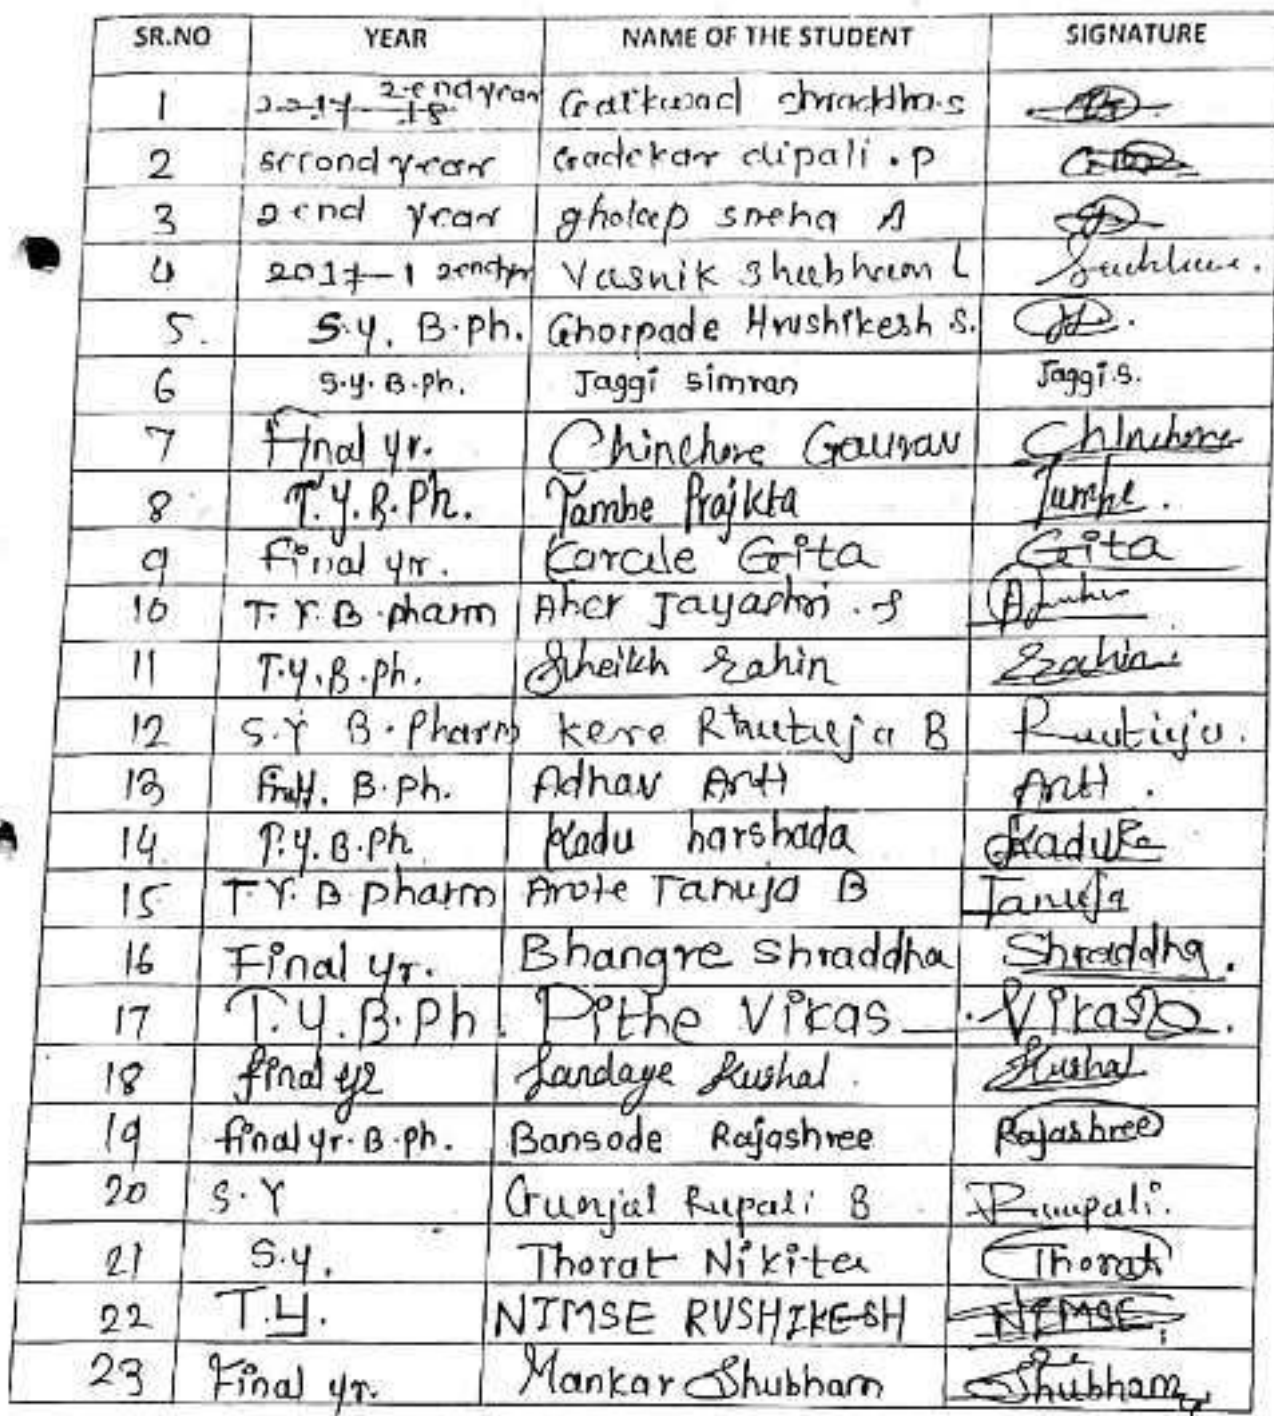 SR.NO YEAR NAME OF THE STUDENT SIGNATURE
1 2017-18 2end year Gaikwad shraddha.s
2 second year Gadekar dipali . p
3 2end year gholap sneha A
4 2017-1 2end yr Vasnik Shubham L
5. S.Y. B.Ph. Ghorpade Hrushikesh S.
6 S.Y. B.Ph. Jaggi simran Jaggi.S.
7 Final yr. Chinchore Gaurav Chinchore
8 T.Y.B.Ph. Tambe Prajkta Tambe.
9 final yr. Karale Gita Gita
10 T.Y.B.pharm Aher Jayashri . S
11 T.Y.B.Ph. Sheikh Zahin Zahin
12 S.Y B.Pharm Kere Rhutuja B Rutuja.
13 B.Ph. Adhav Arti Arti .
14 T.Y.B.Ph Kadu harshada Kadu
15 T.Y.B.pharm Arote Tanuja B Tanuja
16 Final yr. Bhangre Shraddha Shraddha.
17 T.Y.B.Ph. Pithe Vikas Vikas
18 final yr Landage Kushal . Kushal
19 final yr. B.ph. Bansode Rajashree Rajashree
20 S.Y Gunjal Rupali B Rupali.
21 S.Y. Thorat Nikita Thorat
22 T.Y. NIMSE RUSHIKESH NIMSE
23 Final yr. Mankar Shubham Shubham